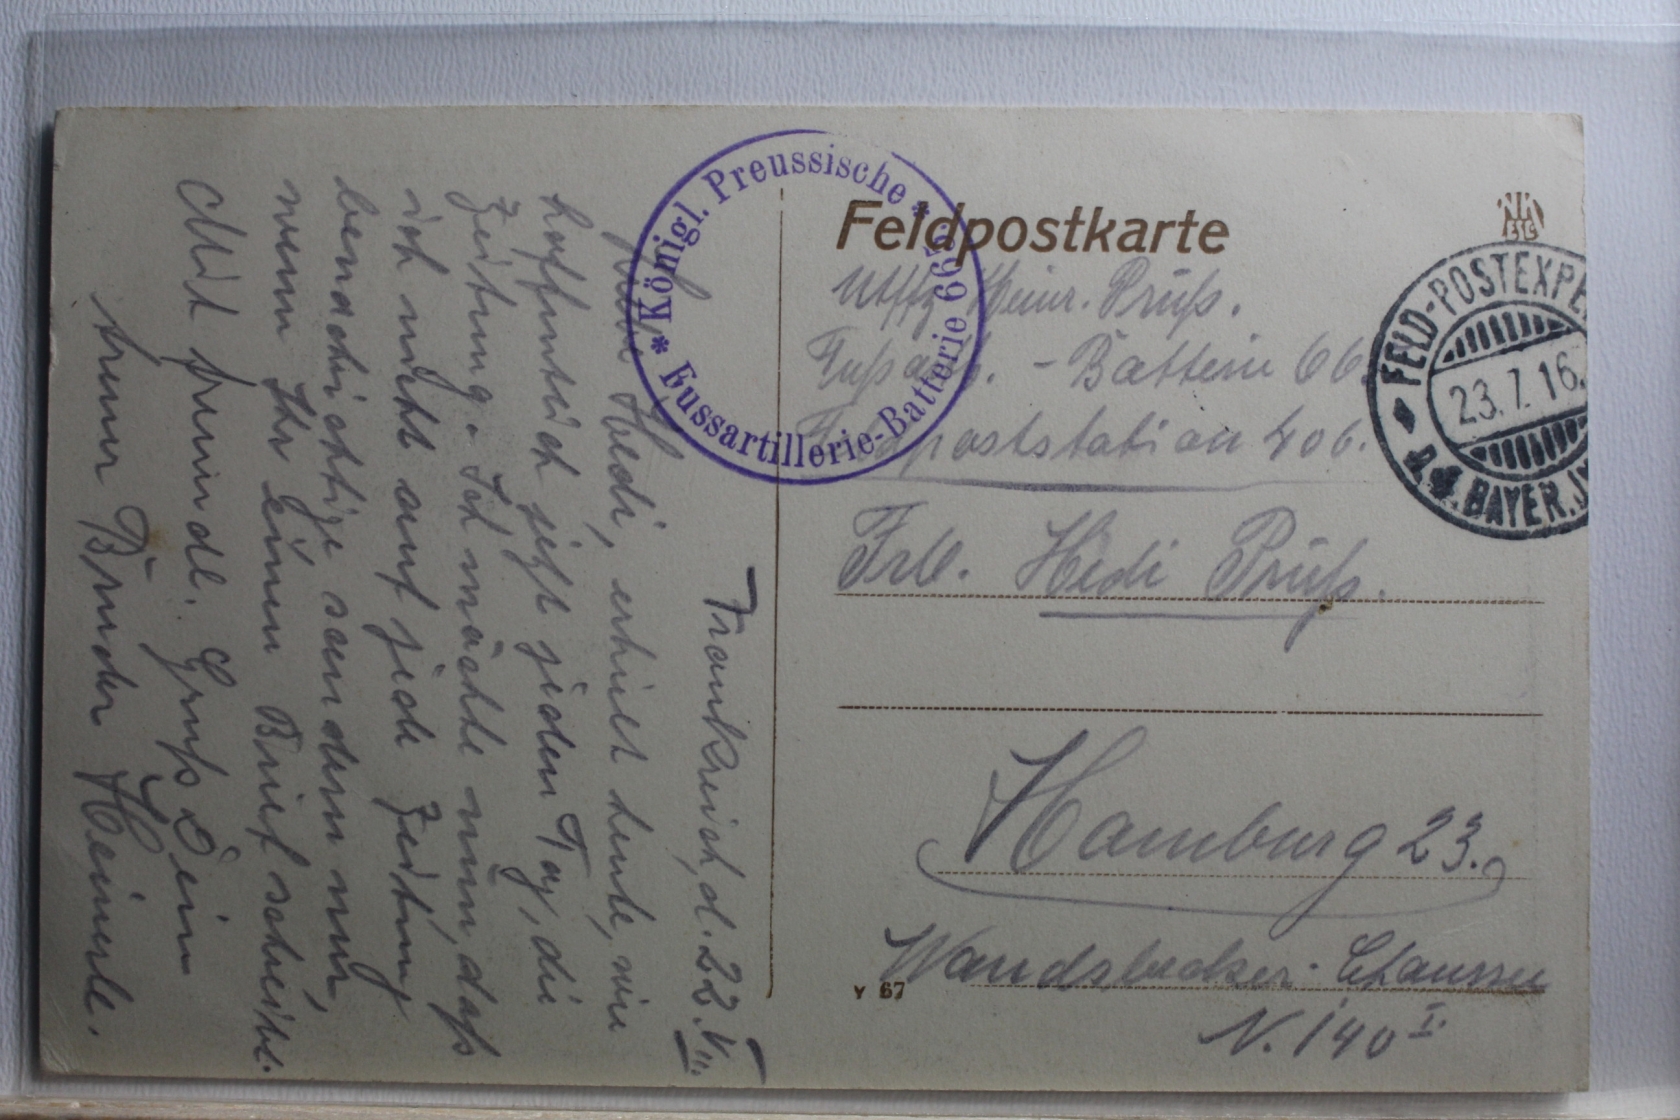 Feldpostkarte
* Königl. Preussische *
Fussartillerie-Batterie 669
FELD-POSTEXPE
23.7.16.
BAYER. J
Uffz Heinr. Prüß.
Fußart. - Batterie 66
Feldpoststation 406.
Frl. Hedi Prüß.
Hamburg 23.
Wandsbecker-Chaussee
N. 140 I.
Y 67
Frankreich, d. 22. VII.
Hedi, erhielt heute, wie
hoffentlich jetzt jeden Tag, die
Zeitung. Ich möchte nun, daß
ich nicht auf jede Zeitung
benachrichtige sondern nur,
wenn Ihr einen Brief schreibt.
Mit freundl. Gruß Dein
treuer Bruder Heinerle.